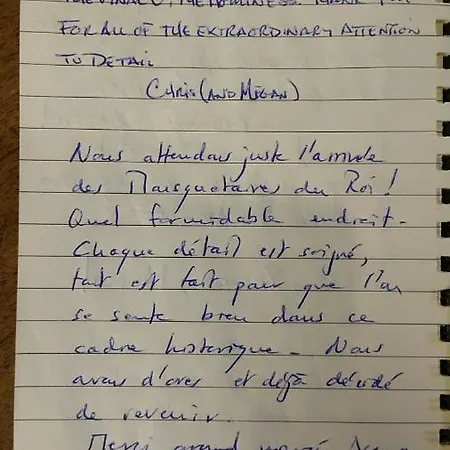 FOR ALL OF THE EXTRAORDINARY ATTENTION
TO DETAIL
CHRIS (AND MEGAN)
Nous attendons juste l'arrivée
des Mousquetaires du Roi !
Quel formidable endroit.
Chaque détail est soigné,
tout est fait pour que l'on
se sente bien dans ce
cadre historique. Nous
avons d'ores et déjà décidé
de revenir.
Merci